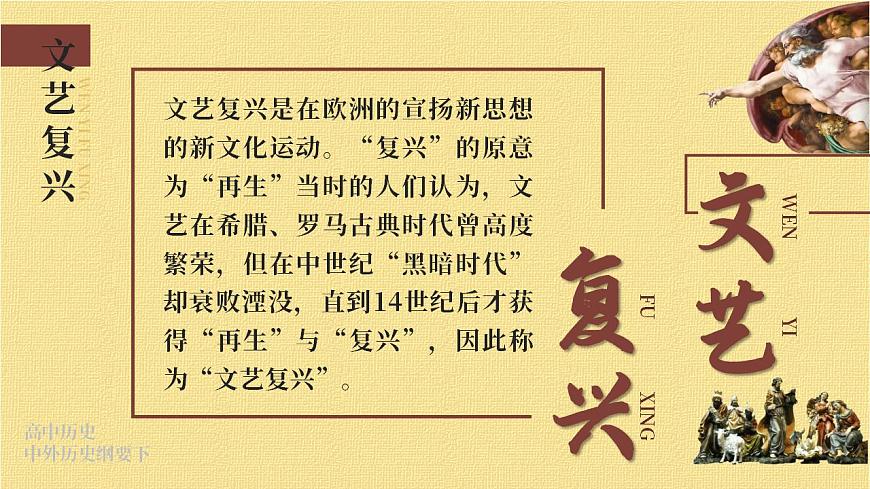 文艺复兴
WEN YI FU XING
文艺复兴是在欧洲的宣扬新思想
的新文化运动。“复兴”的原意
为“再生”当时的人们认为，文
艺在希腊、罗马古典时代曾高度
繁荣，但在中世纪“黑暗时代”
却衰败湮没，直到14世纪后才获
得“再生”与“复兴”，因此称
为“文艺复兴”。
文艺
WEN YI
复兴
FU XING
高中历史
中外历史纲要下